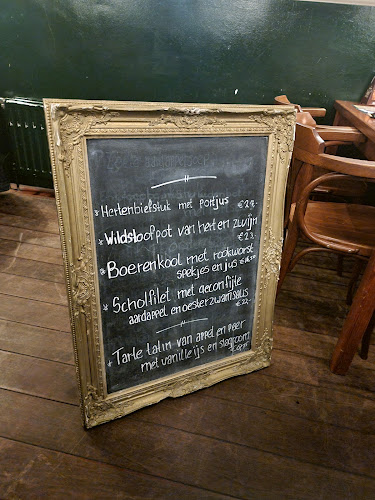 * Hertenbiefstuk met portjus €24.-
* Wildstoofpot van hert en zwijn
€23.-
* Boerenkool met rookworst
spekjes en jus
* Scholfilet met geconfijte
aardappel en oesterzwamsaus
€22.-
* Tarte tatin van appel en peer
met vanille ijs en slagroom